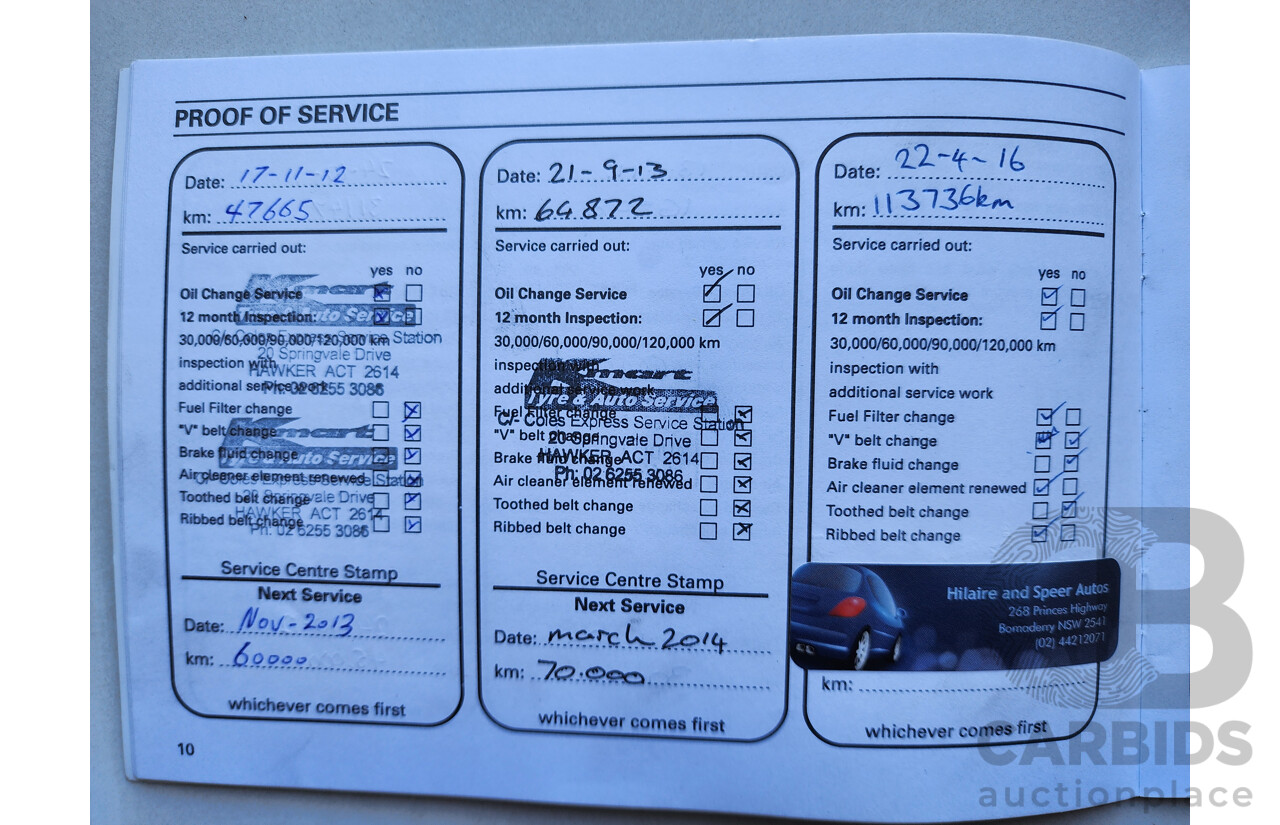 PROOF OF SERVICE
Date: 17-11-12
km: 47665
Service carried out:
yes no
Oil Change Service
12 month Inspection:
30,000/60,000/90,000/120,000 km
inspection with
additional service work
Fuel Filter change
"V" belt change
Brake fluid change
Air cleaner element renewed
Toothed belt change
Ribbed belt change
Kmart
Tyre & Auto Service
C/- Coles Express Service Station
20 Springvale Drive
HAWKER ACT 2614
Ph: 02 6255 3086
Kmart
Tyre & Auto Service
C/- Coles Express Service Station
20 Springvale Drive
HAWKER ACT 2614
Ph: 02 6255 3086
Service Centre Stamp
Next Service
Date: Nov-2013
km: 60000
whichever comes first
Date: 21-9-13
km: 64872
Service carried out:
yes no
Oil Change Service
12 month Inspection:
30,000/60,000/90,000/120,000 km
inspection with
additional service work
Fuel Filter change
"V" belt change
Brake fluid change
Air cleaner element renewed
Toothed belt change
Ribbed belt change
Kmart
Tyre & Auto Service
C/- Coles Express Service Station
20 Springvale Drive
HAWKER ACT 2614
Ph: 02 6255 3086
Service Centre Stamp
Next Service
Date: march 2014
km: 70.000
whichever comes first
Date: 22-4-16
km: 113736km
Service carried out:
yes no
Oil Change Service
12 month Inspection:
30,000/60,000/90,000/120,000 km
inspection with
additional service work
Fuel Filter change
"V" belt change
Brake fluid change
Air cleaner element renewed
Toothed belt change
Ribbed belt change
Hilaire and Speer Autos
268 Princes Highway
Bomaderry NSW 2541
(02) 44212071
km:
whichever comes first
10
B
CARBIDS
auctionplace